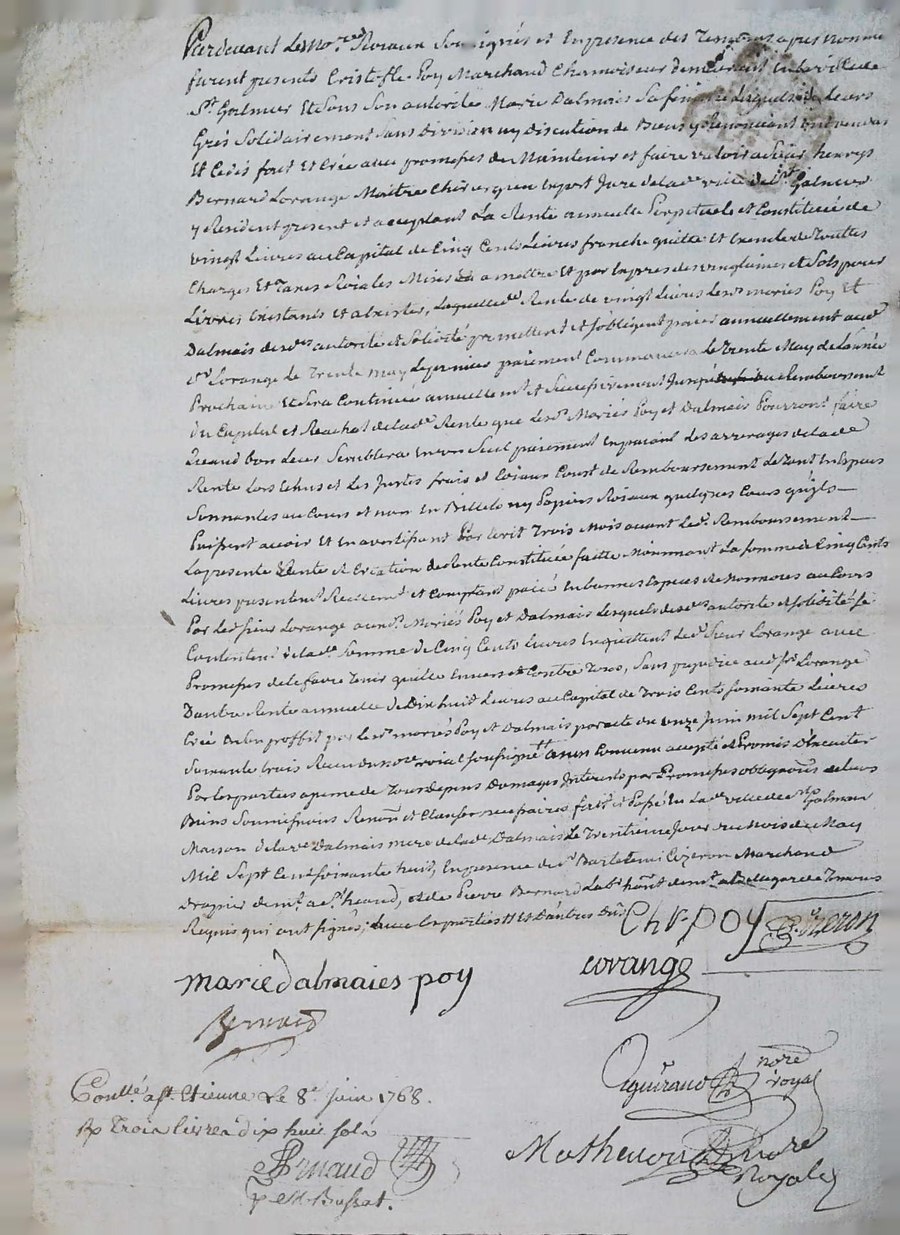 Pardevant Les no.res Roiaux Soussignés et En presence des Temoins apres nommé
furent presents Cristofle Poy Marchand Chamoiseur demeurant En la ville de
St. Galmier Et Sous Son autorité Marie Dalmais Sa femme Lesquels de leurs
Grés Solidairement Sans Division ny Discution de Biens y Renonciant ont vendus
Et Cedés font Et Crée avec promesse de Maintenir et faire valoir a Sieur henrys
Bernard Lorange Maitre Chirurgien Expert Juré de lade. ville de St. Galmier
y Resident present et acceptant La Rente annuelle Perpetuele et Constituée de
vingt Livres au Capital de Cinq Cents Livres franche quitte Et Exemte de Touttes
Charges Et Taxes Roiales Mises Et a mettre Et par Exprés des vingtiemes et Sols pour
Livres Existants et a Exister, Laquelle de. Rente de vingt Livres Les ds. mariés Poy Et
Dalmais de ds. autorité et Solidité promettent et s'obligent paier annuellement au d.
Sr. Lorange Le Trente may Le premier paiement Commencera Le Trente May de L'année
Prochaine Et Sera Continuée annuellemt. et Successivement Jusqu'au Remboursement
Du Capital et Reachat de lade. Rente que Les ds. Mariés Poy et Dalmais Pourront faire
Quand bon Leur Semblera En un Seul paiement En paiant Les arrerages de lade.
Rente Lors Echus et Les Justes frais et Loiaux Coust de Remboursement de Tout En Espece
Sonnantes au Cours et non En Billets ny Papiers Roiaux quelques Cours qu'ils
Puissent avoir Et En avertissant Par Ecrit Trois Mois avant Led. Remboursement
La presente Vente et Création de Rente Constituée faitte Moiennant La somme de Cinq Cents
Livres presentemt. Reelemt. et Comptant paiée En bonnes Especes de Monnoies au Cours
Par Led. Sieur Lorange aux ds. Mariés Poy et Dalmais Lesquels de ds. autorité et solidité se
Contentent de lade. Somme de Cinq Cents Livres En quittent Led. Sieur Lorange avec
Promesse de le faire Tenir quitte Envers et Contre Tous, Sans prejudice aud. Sr. Lorange
D'autre Rente annuelle de Dix huit Livres au Capital de Trois Cents soixante Livres
Crée a Son proffit par Les ds. mariés Poy et Dalmais par acte du onze Juin mil Sept Cent
Soixante trois Recu du nore. roial soussigné Ainsi Convenu accepté et Promis D'Executer
Par les parties a peine de Tous Depens Domages Interests par Promesses obligaons. de Leurs
Biens Soumissions Renons. et Clauses necessaires fait et Passé En Lade. ville de St. Galmier
Maison de la ve. Dalmais mere de lade. Dalmais Le Trentieme Jour du Mois de May
Mil Sept Cent Soixante huit, En presence de Sr. Bartelemi Cizeron Marchand
Drapier de mt. a et de Pierre Bernard Lab. hant. de Temoins
Requis qui ont signés avec Les parties
Chr. POY Cizeron
marie dalmaies poy
Lorange
Bernard
Eguiraud nore. royal
Conllé. a St. Etienne Le 8e. juin 1768.
Rx Trois Livres dix huit sols
Arnaud
p. Mr. Bussat.
Mathevon nore Royale